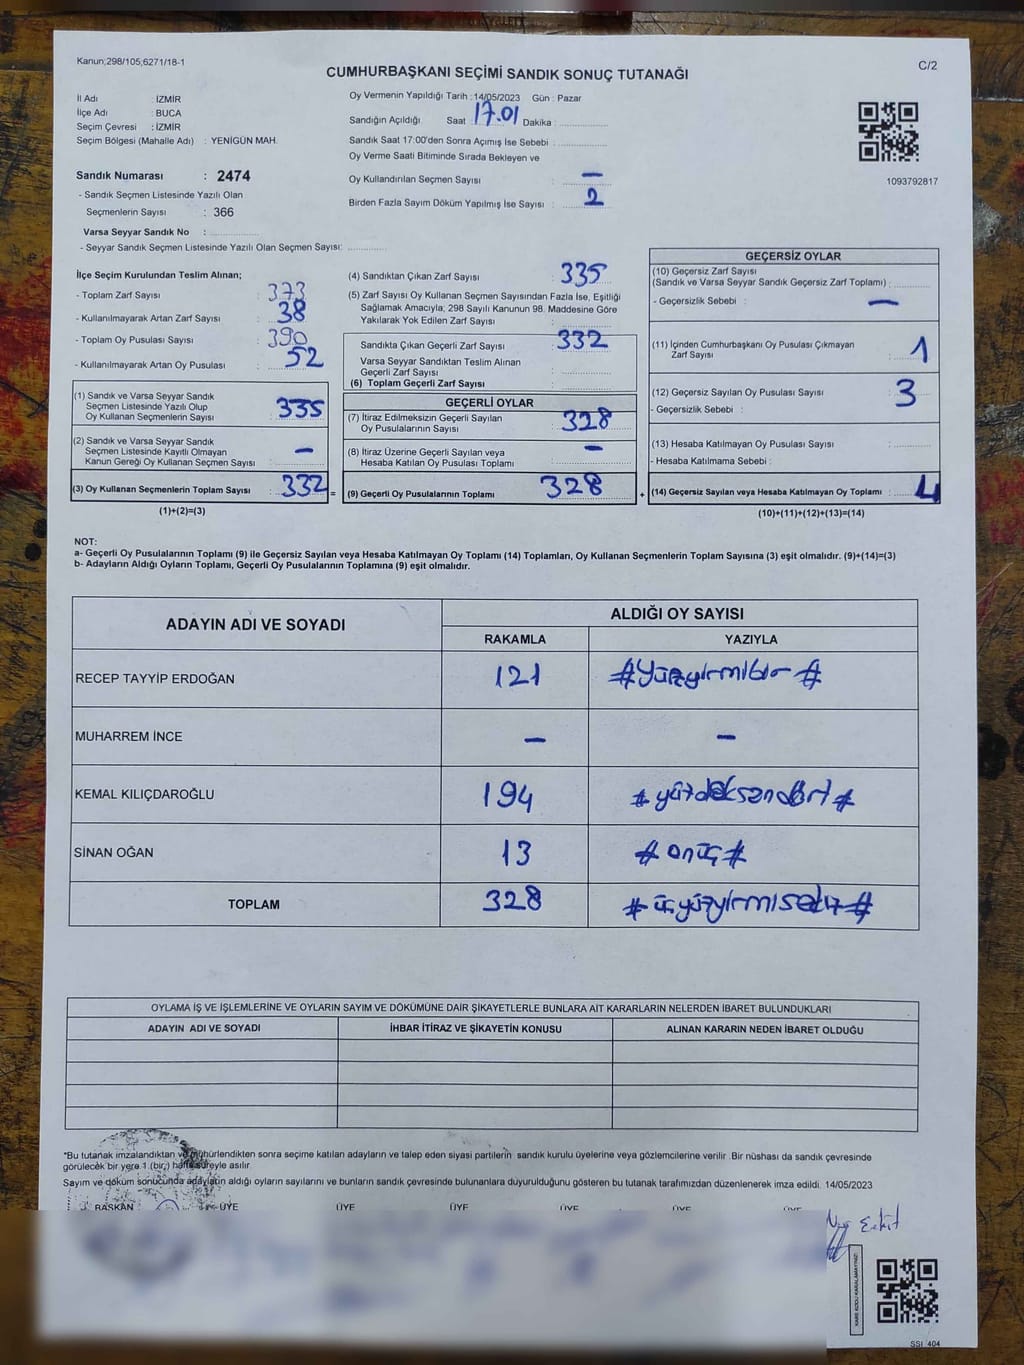 Kanun;298/105;6271/18-1
C/2
CUMHURBAŞKANI SEÇİMİ SANDIK SONUÇ TUTANAĞI
İl Adı : İZMİR
İlçe Adı : BUCA
Seçim Çevresi : İZMİR
Seçim Bölgesi (Mahalle Adı) : YENİGÜN MAH.
Oy Vermenin Yapıldığı Tarih : 14/05/2023 Gün : Pazar
Sandığın Açıldığı Saat : 17.01 Dakika :
Sandık Saat 17:00'den Sonra Açımış İse Sebebi :
Oy Verme Saati Bitiminde Sırada Bekleyen ve
Oy Kullandırılan Seçmen Sayısı : —
Birden Fazla Sayım Döküm Yapılmış İse Sayısı : 2
1093792817
Sandık Numarası : 2474
- Sandık Seçmen Listesinde Yazılı Olan
Seçmenlerin Sayısı : 366
Varsa Seyyar Sandık No :
- Seyyar Sandık Seçmen Listesinde Yazılı Olan Seçmen Sayısı:
İlçe Seçim Kurulundan Teslim Alınan;
- Toplam Zarf Sayısı : 373
- Kullanılmayarak Artan Zarf Sayısı : 38
- Toplam Oy Pusulası Sayısı : 390
- Kullanılmayarak Artan Oy Pusulası : 52
(1) Sandık ve Varsa Seyyar Sandık
Seçmen Listesinde Yazılı Olup
Oy Kullanan Seçmenlerin Sayısı : 335
(2) Sandık ve Varsa Seyyar Sandık
Seçmen Listesinde Kayıtlı Olmayan
Kanun Gereği Oy Kullanan Seçmen Sayısı : —
(3) Oy Kullanan Seçmenlerin Toplam Sayısı : 332 =
(1)+(2)=(3)
(4) Sandıktan Çıkan Zarf Sayısı : 335
(5) Zarf Sayısı Oy Kullanan Seçmen Sayısından Fazla İse, Eşitliği
Sağlamak Amacıyla; 298 Sayılı Kanunun 98. Maddesine Göre
Yakılarak Yok Edilen Zarf Sayısı :
Sandıkta Çıkan Geçerli Zarf Sayısı : 332
Varsa Seyyar Sandıktan Teslim Alınan
Geçerli Zarf Sayısı :
(6) Toplam Geçerli Zarf Sayısı :
GEÇERLİ OYLAR
(7) İtiraz Edilmeksizin Geçerli Sayılan
Oy Pusulalarının Sayısı : 328
(8) İtiraz Üzerine Geçerli Sayılan veya
Hesaba Katılan Oy Pusulası Toplamı : —
(9) Geçerli Oy Pusulalarının Toplamı 328 +
GEÇERSİZ OYLAR
(10) Geçersiz Zarf Sayısı
(Sandık ve Varsa Seyyar Sandık Geçersiz Zarf Toplamı) :
- Geçersizlik Sebebi : —
(11) İçinden Cumhurbaşkanı Oy Pusulası Çıkmayan
Zarf Sayısı : 1
(12) Geçersiz Sayılan Oy Pusulası Sayısı : 3
- Geçersizlik Sebebi :
(13) Hesaba Katılmayan Oy Pusulası Sayısı :
- Hesaba Katılmama Sebebi :
(14) Geçersiz Sayılan veya Hesaba Katılmayan Oy Toplamı : 4
(10)+(11)+(12)+(13)=(14)
NOT:
a- Geçerli Oy Pusulalarının Toplamı (9) ile Geçersiz Sayılan veya Hesaba Katılmayan Oy Toplamı (14) Toplamları, Oy Kullanan Seçmenlerin Toplam Sayısına (3) eşit olmalıdır. (9)+(14)=(3)
b- Adayların Aldığı Oyların Toplamı, Geçerli Oy Pusulalarının Toplamına (9) eşit olmalıdır.
ADAYIN ADI VE SOYADI
ALDIĞI OY SAYISI
RAKAMLA YAZIYLA
RECEP TAYYİP ERDOĞAN 121 #Yüzyirmibir#
MUHARREM İNCE — —
KEMAL KILIÇDAROĞLU 194 #yüzdoksandört#
SİNAN OĞAN 13 #onüç#
TOPLAM 328 #üçyüzyirmisekiz#
OYLAMA İŞ VE İŞLEMLERİNE VE OYLARIN SAYIM VE DÖKÜMÜNE DAİR ŞİKAYETLERLE BUNLARA AİT KARARLARIN NELERDEN İBARET BULUNDUKLARI
ADAYIN ADI VE SOYADI İHBAR İTİRAZ VE ŞİKAYETİN KONUSU ALINAN KARARIN NEDEN İBARET OLDUĞU
*Bu tutanak imzalandıktan ve mühürlendikten sonra seçime katılan adayların ve talep eden siyasi partilerin sandık kurulu üyelerine veya gözlemcilerine verilir. Bir nüshası da sandık çevresinde
görülecek bir yere 1 (bir) hafta süreyle asılır.
Sayım ve döküm sonucunda adayların aldığı oyların sayılarını ve bunların sandık çevresinde bulunanlara duyurulduğunu gösteren bu tutanak tarafımızdan düzenlenerek imza edildi. 14/05/2023
BAŞKAN ÜYE ÜYE ÜYE ÜYE ÜYE ÜYE
SSİ 404